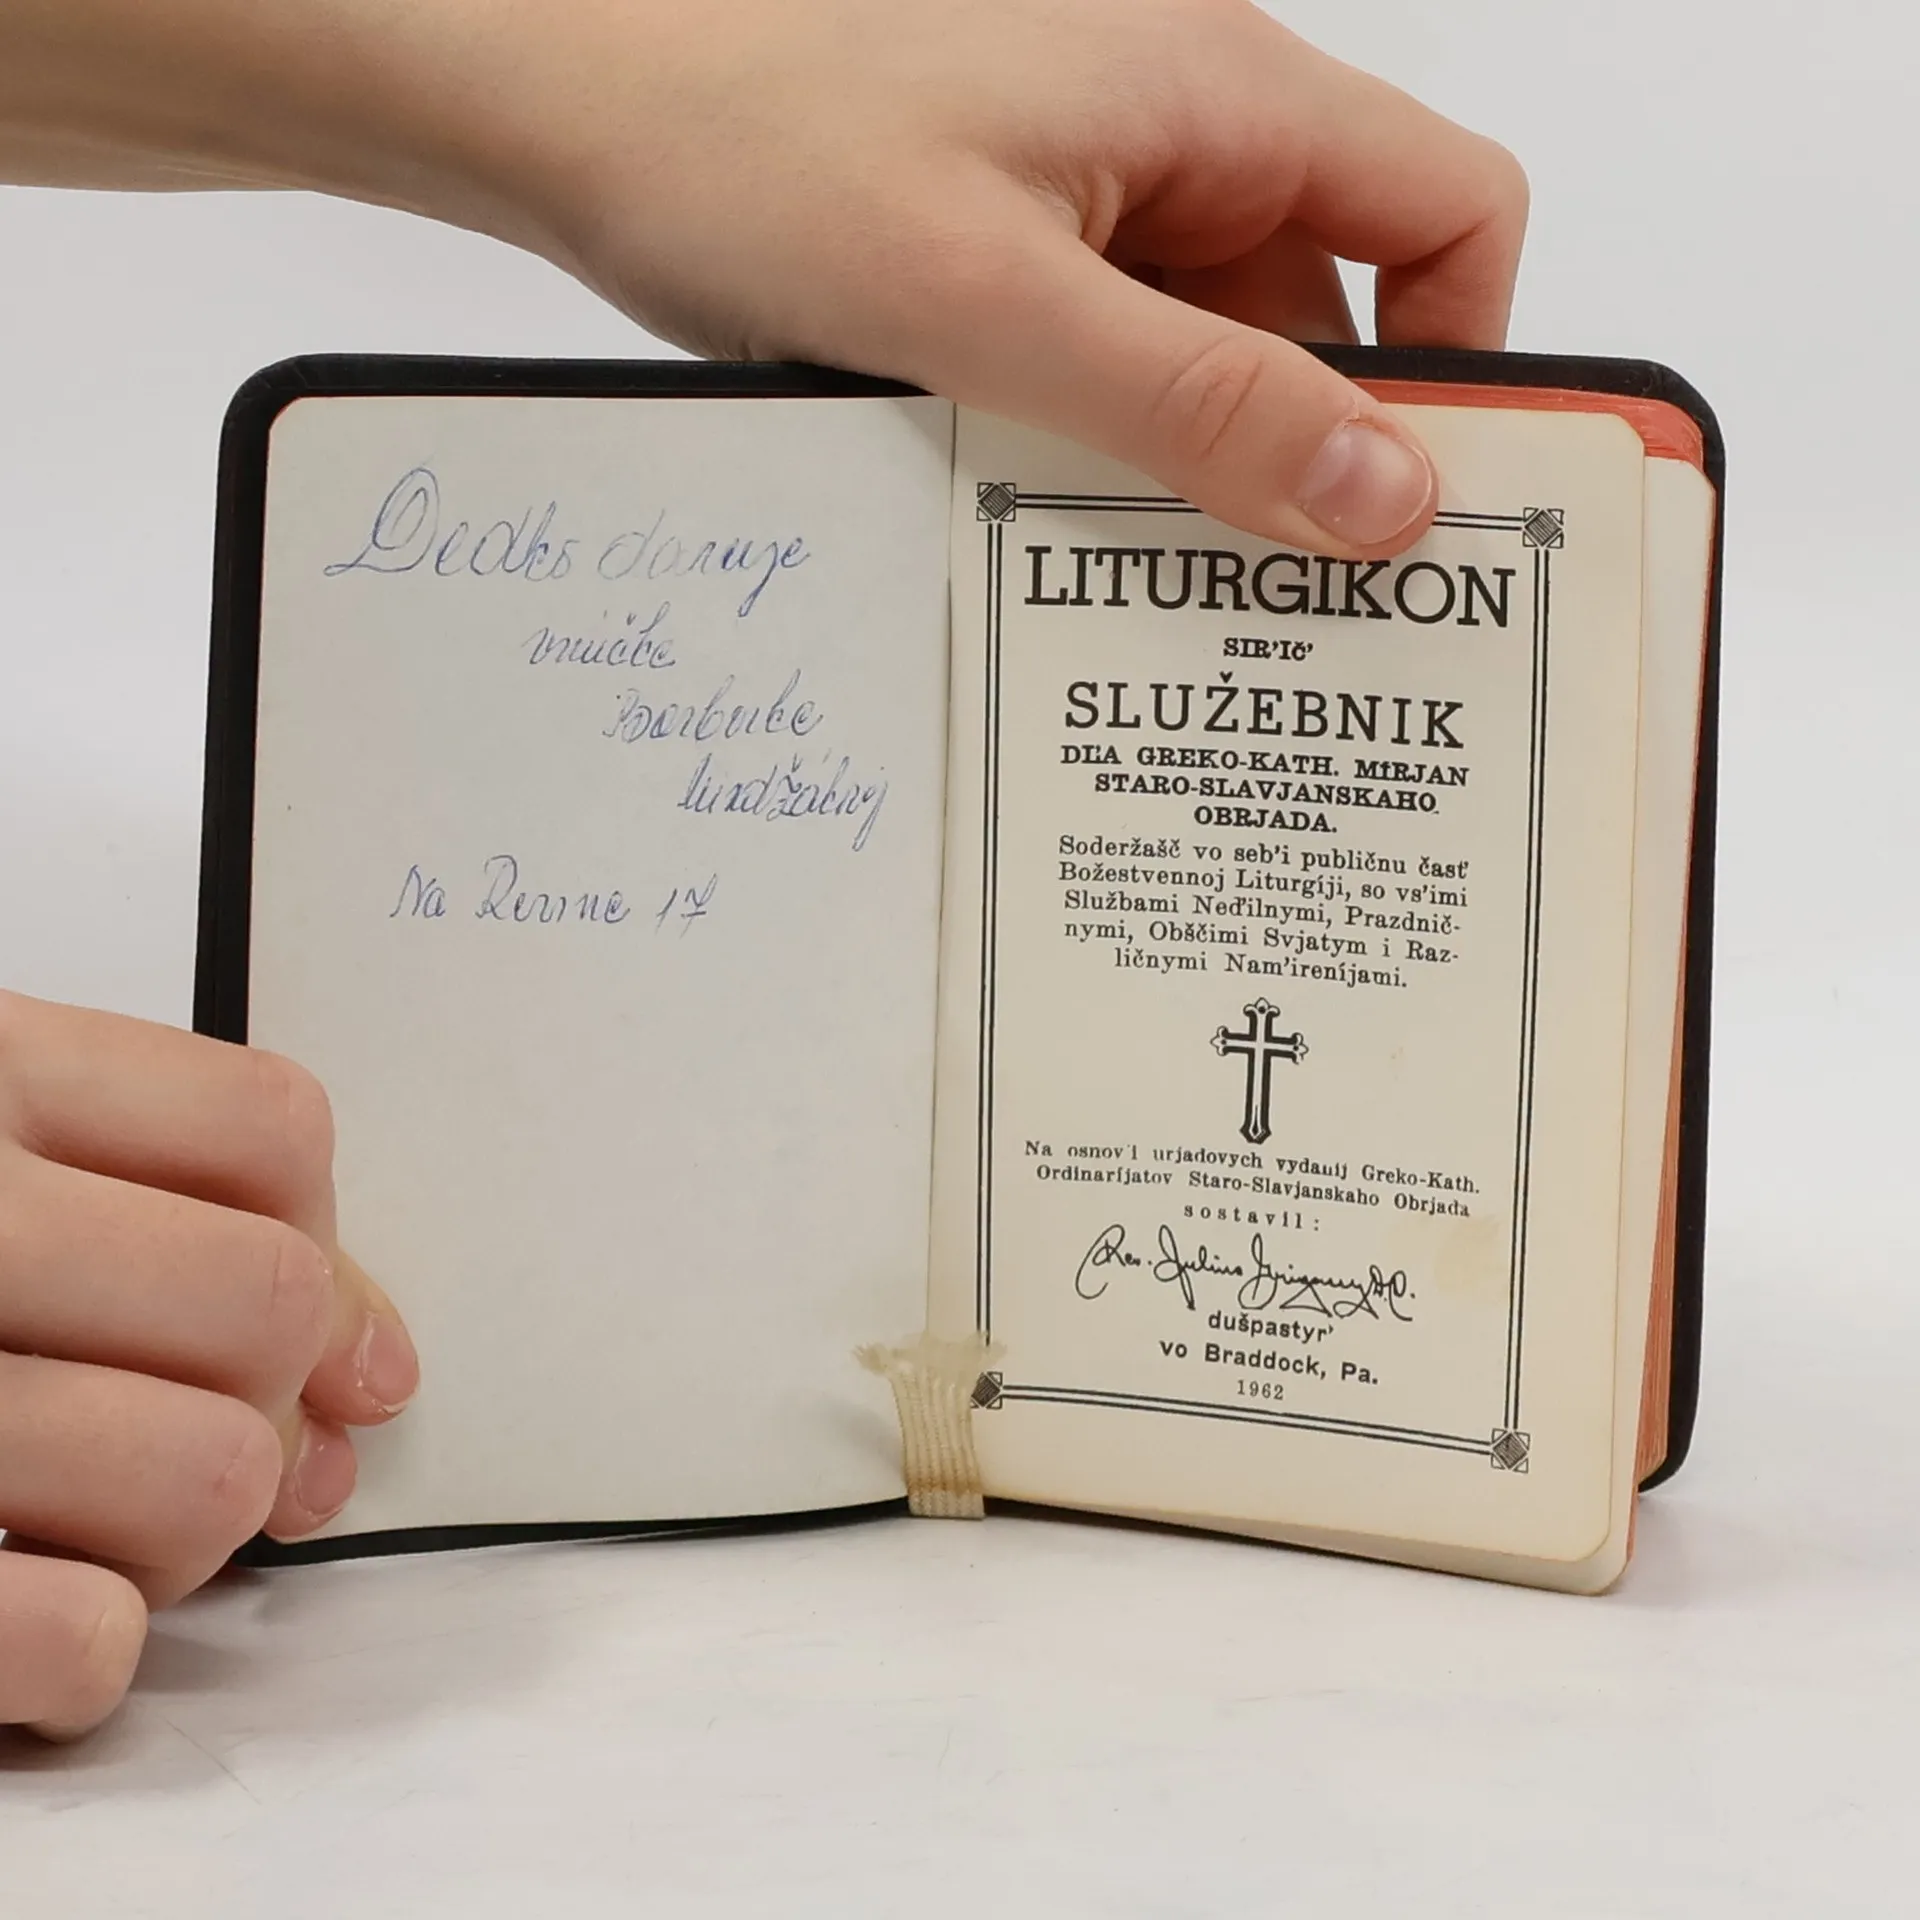 Dedko daruje
vnučke
Barborke
Na Revine 17
LITURGIKON
SIR'IČ'
SLUŽEBNIK
DĽA GREKO-KATH. MÍRJAN
STARO-SLAVJANSKAHO
OBRJADA.
Soderžašč vo seb'i publičnu časť
Božestvennoj Liturgíji, so vs'imi
Službami Neďilnymi, Prazdnič-
nymi, Obščimi Svjatym i Raz-
ličnymi Nam'ireníjami.
Na osnov'i urjadovych vydanij Greko-Kath.
Ordinaríjatov Staro-Slavjanskaho Obrjada
sostavil:
Rev. Julius Grigassy D.D.
dušpastyr'
vo Braddock, Pa.
1962